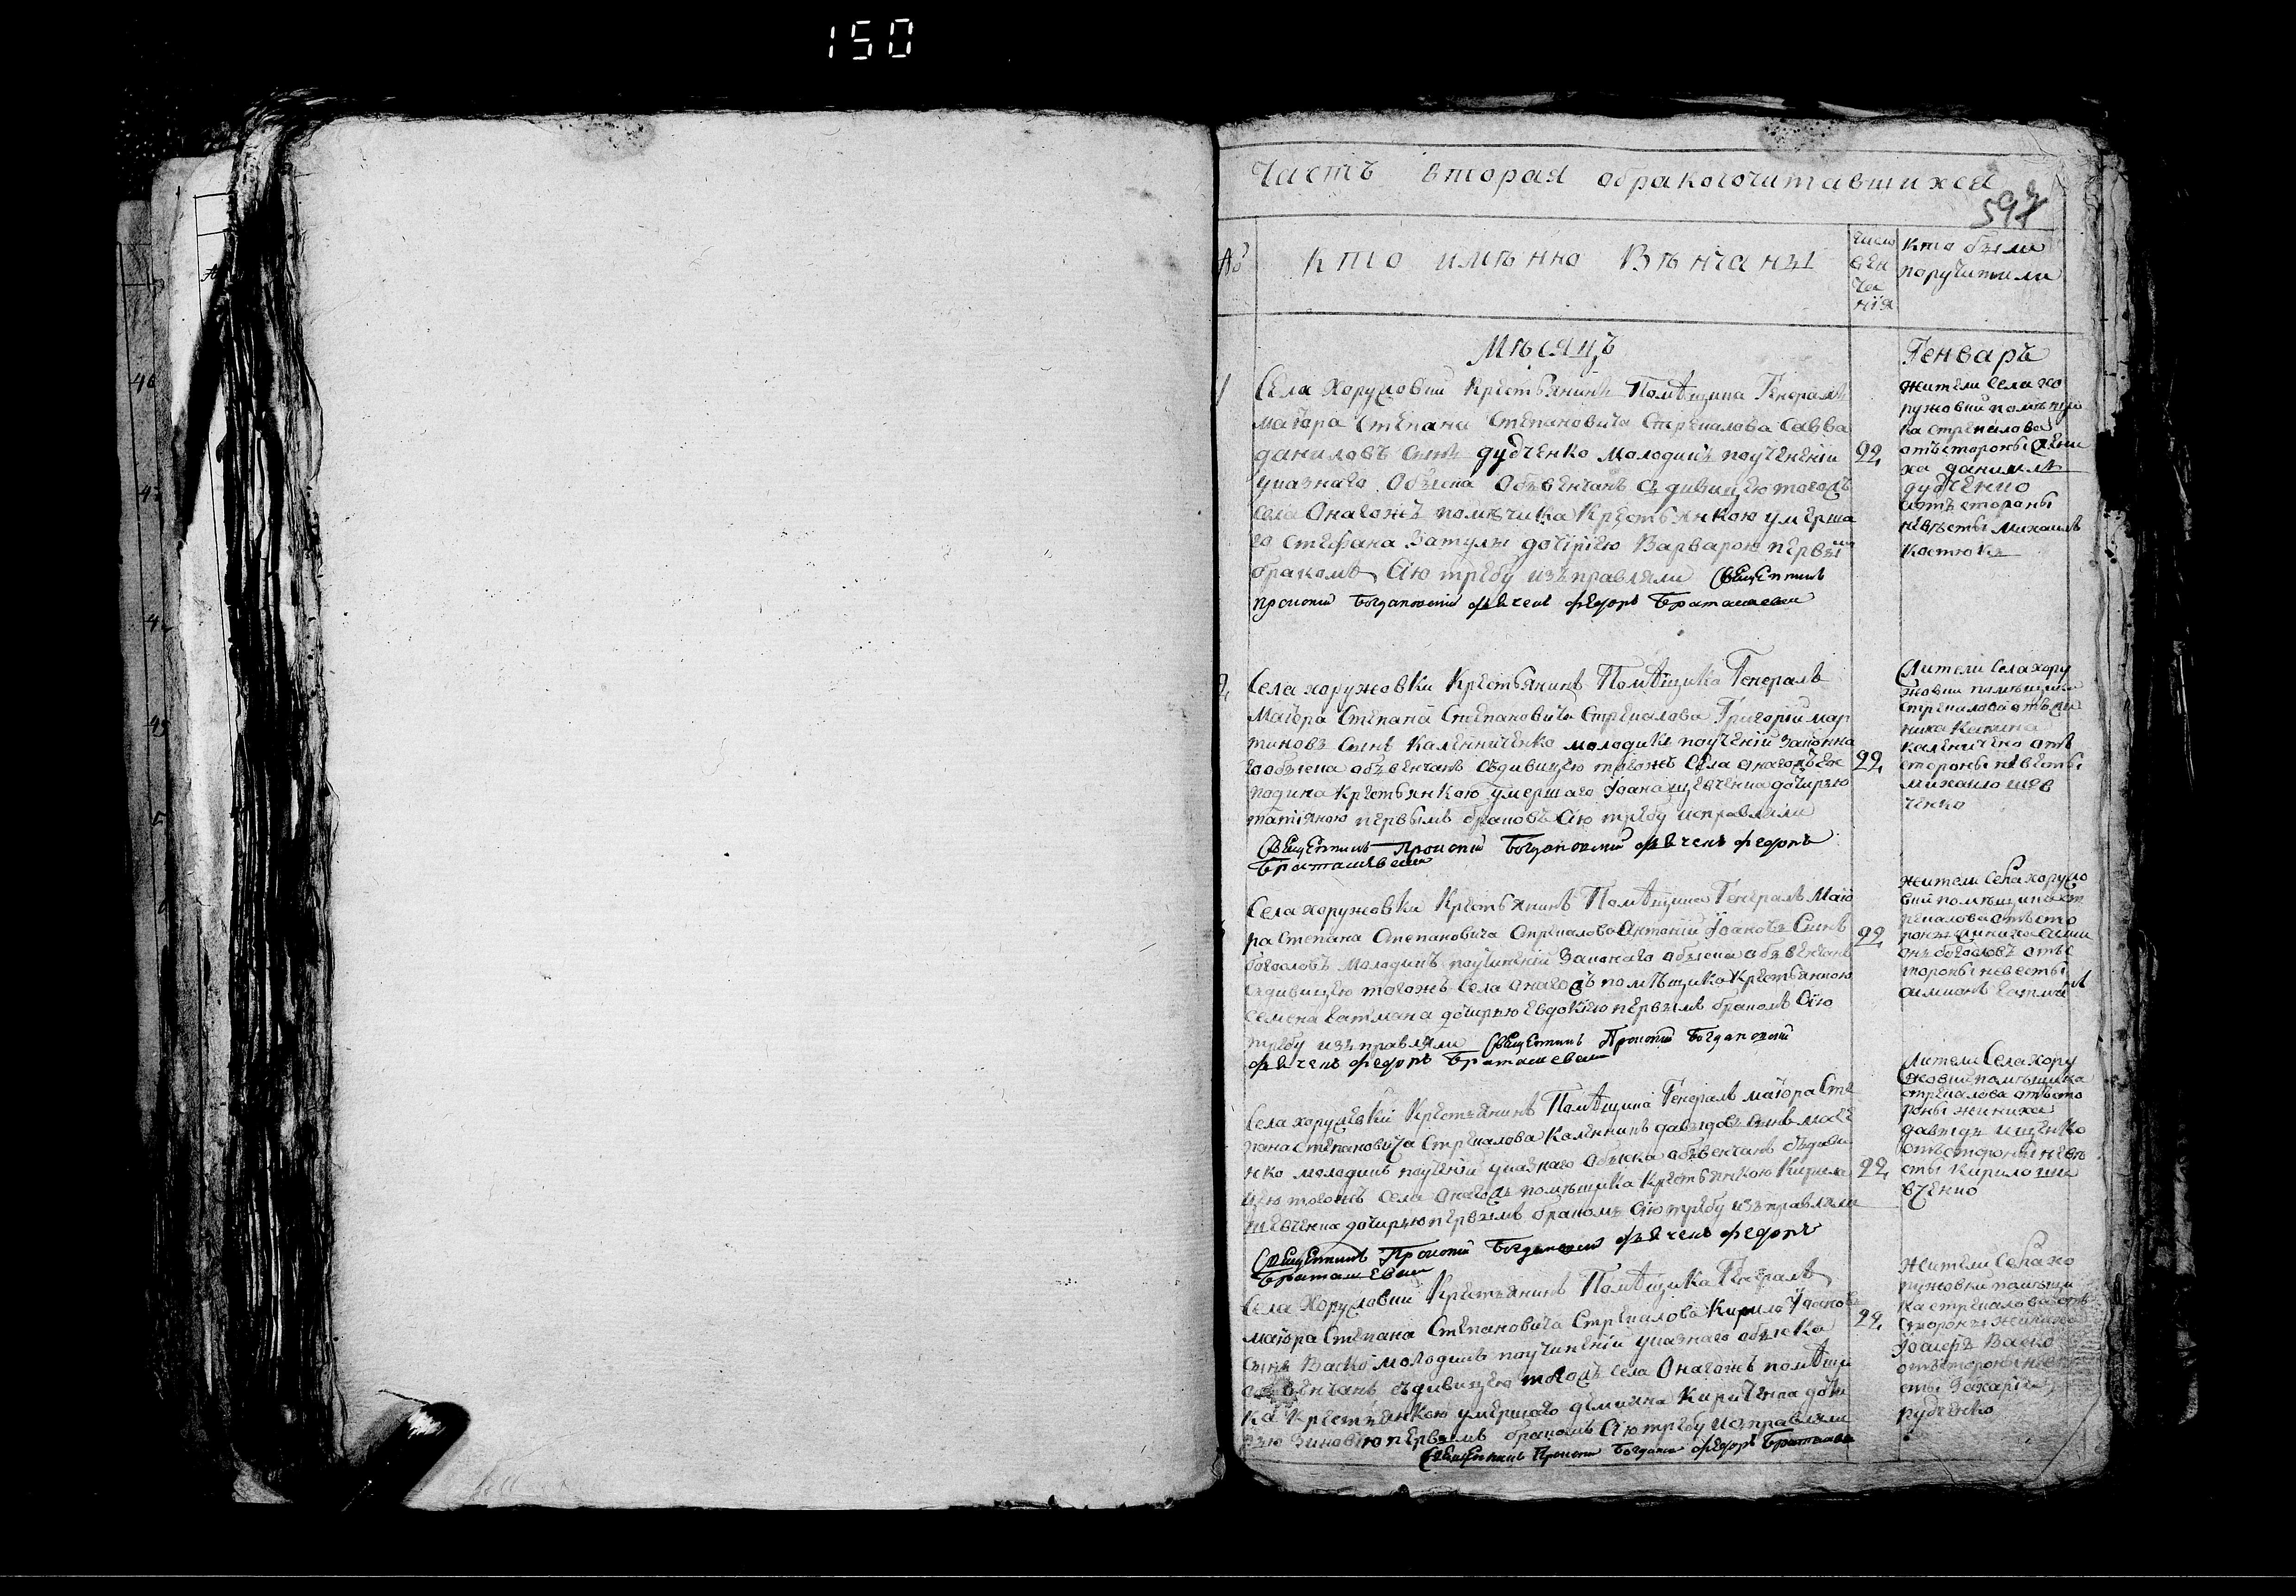 150
Часть вторая обракосочитавшихся
597
№
кто имѣнно Вѣнчаны
число
вен
ча
нїя
кто были
поручители
Мѣсяцъ
Генварь
1
Села Хоружовки Крестьянинъ Помѣщика Генералъ
маїора Степана Степановича Стрекалова Савва
даниловъ сынъ дудченко молодикъ поучененїи
указнаго обыска обвѣнчанъ здивицею тогодъ
села Онагожъ помѣщика Крестьянкою умерша
го Стефана Затулы дочерїею Варварою первїи
бракомъ Сїю требу изъправляли Священникъ
Прокопий Богдановский дьячекъ федоръ Браташевский
22
жители села хо
ружовки помѣщи
ка стрекалова
отъстороны жени
ха данилъ
дудченко
аотъ стороны
невѣсты михаилъ
костюкъ
2
Села хоружовки Крестьянинъ Помѣщика Генералъ
Маїора Степана Степановича Стрекалова Григорїи мар
тиновъ сынъ Каленниченко молодикъ поученїи законна
гообыска объвенчанъ съдивицею тогожъ села онагодъгос
подина крестьянкою умершаго Іоана шевченка дочирью
татїяною первымъ браковъ Сїю требу исправляли
Священникъ Прокопий Богдановский дьячекъ федоръ
Браташевский
22
Жители села хору
жовки помѣщика
стрекалова отъ
каленичено отъ
стороны невѣсты
михаило шев
ченко
Села хоружовки Крестьянинъ Помѣщика Генералъ Маїо
ра Степана Степановича Стрекалова Антонїй Іоановъ Сынъ
богословъ молодикъ поучиненїй законаго обыска объвенчанъ
сдивицею тогожъ села онагодъ помѣщика Крестьянкою
семена ватмана дочирью Евдокїею первымъ бракомъ Сїю
требу изъправляли Священникъ Прокопий Богдановский
дьячекъ федоръ Браташевский
22
жители села хоружо
вки помѣщика ст
рекалова отъсто
роны жениха
богословъ отъс
тороны невесты
симионъ
Села хоружовки Крестьянинъ Помѣщика Генералъ маїора Сте
пана Степановича Стрекалова Каленникъ давидовъ сынъ
нко молодикъ поученїй указнаго обыска объвенчанъ съдиви
цею тогожъ села онагодъ помѣщика Крестьянкою Кирила
шевченка дочирью первымъ бракомъ Сїю требу изъправляли
Священникъ Прокопий Богдановский дьячекъ федоръ
Браташевский
22
Жители Села хору
жовки помѣщика
стрекалова отъсто
роны жениха
давидъ ищенко
отъстороны невѣ
сты кирило ше
вченко
Села Хоружовки Крестьянинъ Помѣщика Генералъ
маїора Степана Степановича Стрекалова Кирило Іоановъ
сынъ Васко молодикъ поучиненїй указнаго обыска
обвѣнчанъ съдивицею тогодъ села Онагожъ помѣщи
ка крестьянкою умершаго демяна Кириченка доче
рью Зиновїю первымъ бракомъ Сїю требу исправляли
Священникъ Прокопий Богданов федоръ Браташев
22
Жители села хо
ружовки помѣщи
ка стрекалова отъ
стороны жениха
Васко
отъстороны невѣ
сты Захарїи
рубченко